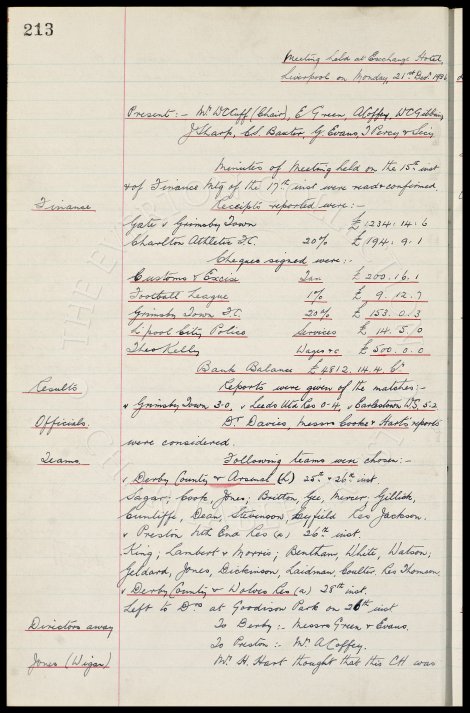 213
Meeting held at Exchange Hotel,
Liverpool on Monday, 21st Decr 1936
Present :- Mr W.C. Cuff (Chair), E. Green, A. Coffey, W.C. Gibbins
J. Sharp, C.S. Baxter, G. Evans, T. Percy & Secy
Minutes of Meeting held on the 15th inst
& of Finance Mtg of the 17th inst were read & confirmed.
Finance Receipts reported were :-
Gate v Grimsby Town £1234.14.6
Charlton Athletic F.C. 20% £194.9.1
Cheques signed were :-
Customs & Excise Tax £200.16.1
Football League 1% £9.12.7
Grimsby Town F.C. 20% £153.0.3
L'pool City Police Services £14.5.0
Theo Kelly Wages &c £500.0.0
Bank Balance £4812.14.4
Results Reports were given of the matches :-
v Grimsby Town 3-0, v Leeds Utd Res 0-4, v Earlestown W.S. 5-2
Officials. Dr Davies, Messrs Cooke & Hart's reports
were considered.
Teams. Following teams were chosen :-
v Derby County & Arsenal (h) 25th & 26th inst
Sagar; Cook, Jones; Britton, Gee, Mercer, Gillick,
Cunliffe, Dean, Stevenson, Leyfield Res Jackson.
v Preston Nth End Res (a) 26th inst.
King; Lambert & Morris; Bentham, White, Watson,
Geldard, Jones, Dickinson, Laidman, Coulter. Res Thomson.
v Derby County & Wolves Res (a) 28th inst.
Left to Drs at Goodison Park on 26th inst
Directors away To Derby :- Messrs Green & Evans.
To Preston :- Mr A Coffey.
Jones (Wigan) Mr H. Hart thought that this CH was